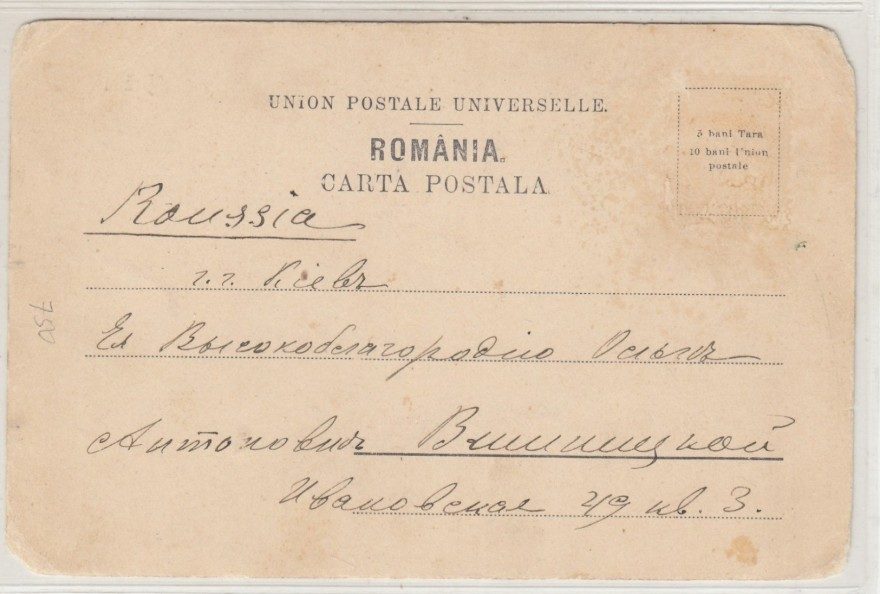 UNION POSTALE UNIVERSELLE.
ROMÂNIA.
CARTA POSTALA
5 bani Tara
10 bani Union
postale
Roussia
г. г. Кіевъ
Ея Высокоблагородію Ольгѣ
Антоновнѣ Винницкой
Ивановская 49 кв. 3.
750